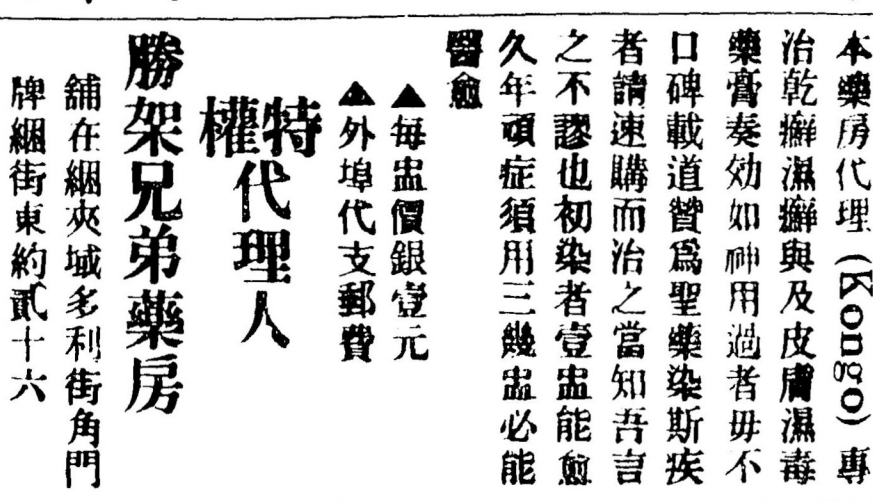 本藥房代理(Kongo)專
治乾癬濕癬與及皮膚濕毒
藥膏奏効如神用過者毋不
口碑載道贊爲聖藥染斯疾
者請速購而治之當知吾言
之不謬也初染者壹盅能愈
久年頑症須用三幾盅必能
醫愈
▲每盅價銀壹元
▲外埠代支郵費
特權代理人
勝架兄弟藥房
舖在綑夾域多利街角門
牌綑街東約貳十六